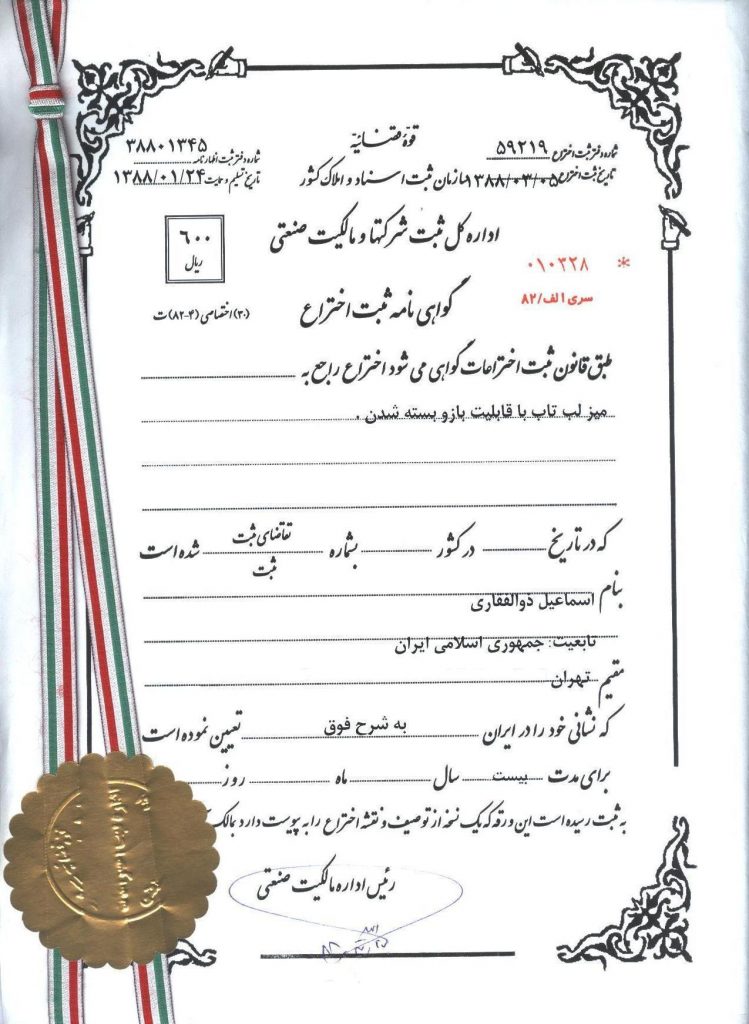 قوهٔ قضائیه
شماره دفتر ثبت اختراع ۵۹۲۱۹
شماره دفتر ثبت اظهارنامه ۳۸۸۰۱۳۴۵
سازمان ثبت اسناد و املاک کشور
تاریخ ثبت اختراع ۱۳۸۸/۰۳/۰۵
تاریخ تسلیم و حمایت ۱۳۸۸/۰۱/۲۴
اداره کل ثبت شرکتها و مالکیت صنعتی
۶۰۰
ریال
* ۰۱۰۳۲۸
سری الف/۸۲
گواهی نامه ثبت اختراع
(۳۰) اختصاصی (۴-۸۲) ت
طبق قانون ثبت اختراعات گواهی می شود اختراع راجع به
میز لب تاپ با قابلیت بازو بسته شدن .
که در تاریخ در کشور بشماره تقاضای ثبت شده است
ثبت
بنام اسماعیل ذوالفقاری
تابعیت: جمهوری اسلامی ایران
مقیم تهران
که نشانی خود را در ایران به شرح فوق تعیین نموده است
برای مدت بیست سال ماه روز
به ثبت رسیده است این ورقه که یک نسخه از توصیف و نقشه اختراع را به پیوست دارد بمالک
رئیس اداره مالکیت صنعتی